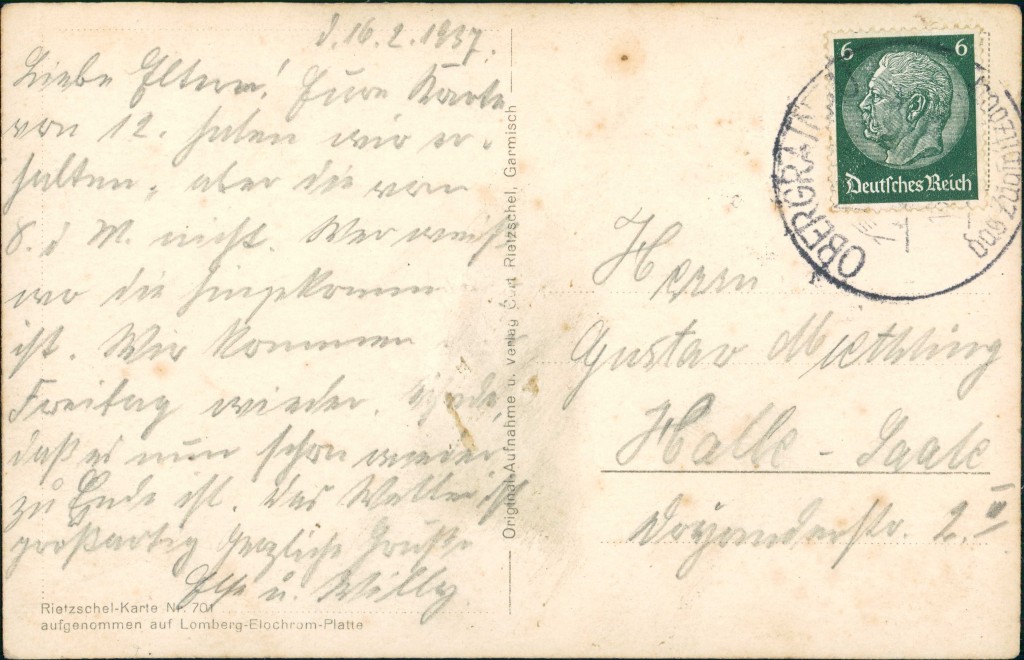 d. 16.2.1937.
Liebe Eltern! Eure Karte
von 12. haben wir er-
halten, aber die vom
8. d M. nicht. Wer weiß
wo die hingekommen
ist. Wir kommen
Freitag wieder. Schade,
daß es nun schon wieder
zu Ende ist. Das Wetter ist
großartig Herzliche Grüße
Else u. Willy
Rietzschel-Karte Nr. 701
aufgenommen auf Lomberg-Elochrom-Platte
Original-Aufnahme u. Verlag Curt Rietzschel, Garmisch
6 6
Deutsches Reich
OBERGRAIN
Herrn
Gustav Miethling
Halle - Saale
Dryanderstr. 2.II